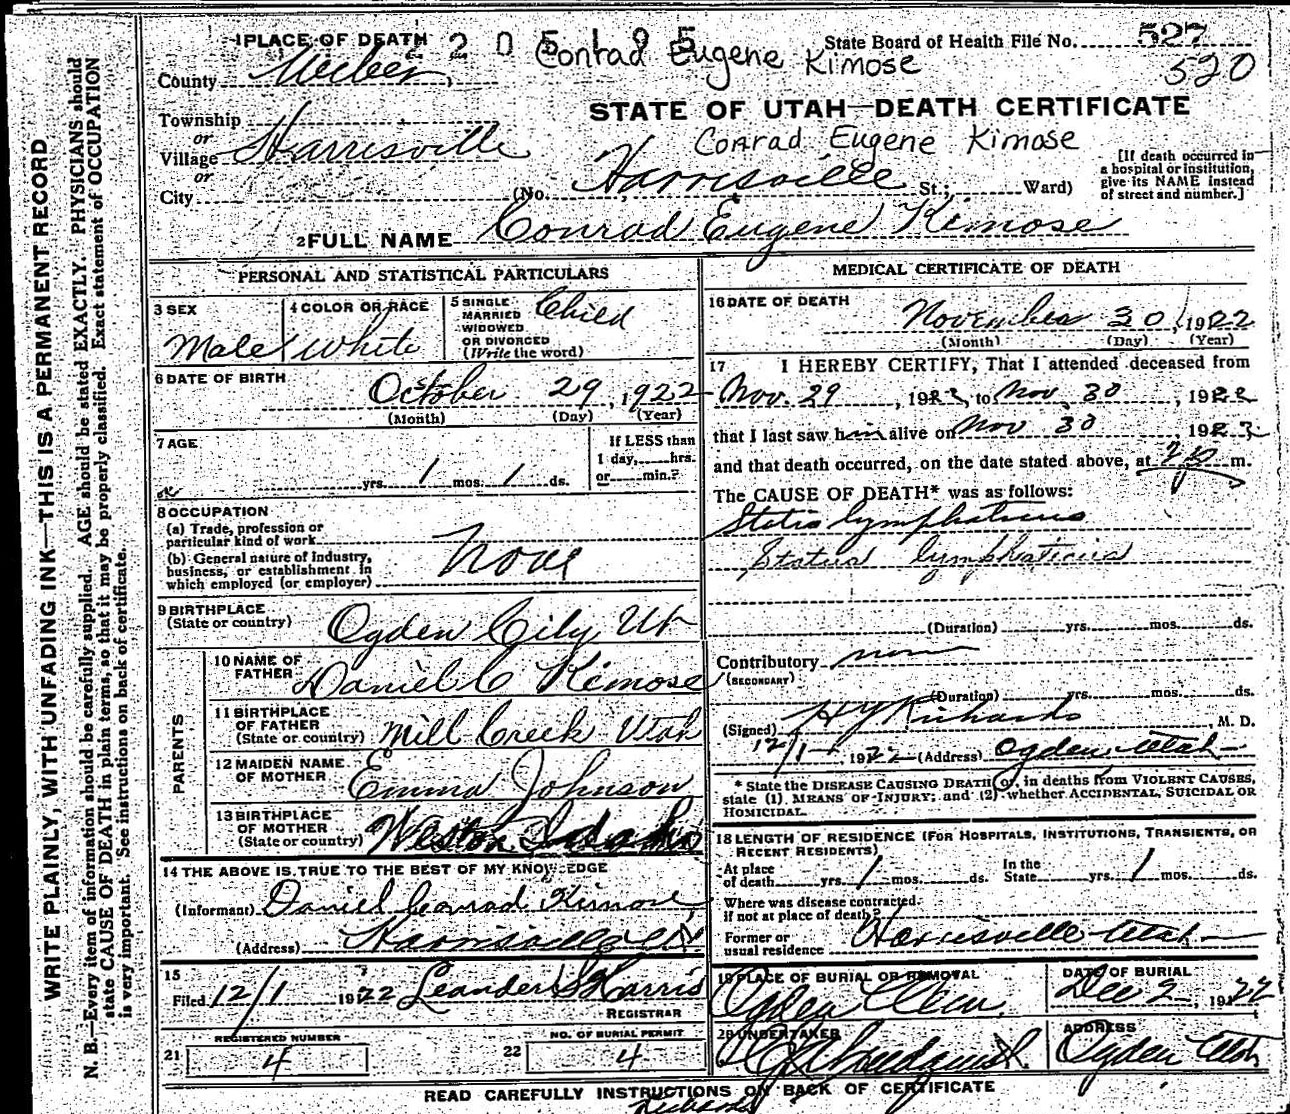 WRITE PLAINLY, WITH UNFADING INK—THIS IS A PERMANENT RECORD
N. B.—Every item of information should be carefully supplied. AGE should be stated EXACTLY. PHYSICIANS should
state CAUSE OF DEATH in plain terms, so that it may be properly classified. Exact statement of OCCUPATION
is very important. See instructions on back of certificate.
1 PLACE OF DEATH 2 2 0 5 1 0 5 State Board of Health File No. 527
Conrad Eugene Kimose 520
County Weber
STATE OF UTAH—DEATH CERTIFICATE
Township
or
Conrad Eugene Kimose
Village Harrisville
or
City (No. Harrisville St.; Ward)
[If death occurred in
a hospital or institution,
give its NAME instead
of street and number.]
2 FULL NAME Conrad Eugene Kimose
PERSONAL AND STATISTICAL PARTICULARS
3 SEX
Male
4 COLOR OR RACE
White
5 SINGLE
MARRIED
WIDOWED
OR DIVORCED
(Write the word)
Child
6 DATE OF BIRTH
October 29, 1922
(Month) (Day) (Year)
7 AGE
yrs. 1 mos. 1 ds.
If LESS than
1 day, hrs.
or min.?
8 OCCUPATION
(a) Trade, profession or
particular kind of work
(b) General nature of industry,
business, or establishment in
which employed (or employer)
None
9 BIRTHPLACE
(State or country) Ogden City Ut
PARENTS
10 NAME OF
FATHER Daniel C Kimose
11 BIRTHPLACE
OF FATHER
(State or country) Mill Creek Utah
12 MAIDEN NAME
OF MOTHER Emma Johnson
13 BIRTHPLACE
OF MOTHER
(State or country) Weston Idaho
14 THE ABOVE IS TRUE TO THE BEST OF MY KNOWLEDGE
(Informant) Daniel Conrad Kimose
(Address) Harrisville Ut
15
Filed 12/1 1922 Leander S Harris
REGISTRAR
REGISTERED NUMBER
21 4
NO. OF BURIAL PERMIT
22 4
MEDICAL CERTIFICATE OF DEATH
16 DATE OF DEATH
November 30, 1922
(Month) (Day) (Year)
17 I HEREBY CERTIFY, That I attended deceased from
Nov. 29, 1922, to Nov 30, 1922
that I last saw him alive on Nov 30 192
and that death occurred, on the date stated above, at m.
The CAUSE OF DEATH* was as follows:
Status lymphaticus
Status lymphaticus
(Duration) yrs. mos. ds.
Contributory none
(SECONDARY)
(Duration) yrs. mos. ds.
(Signed) H Y Richards, M. D.
12/1 1922 (Address) Ogden Utah
* State the DISEASE CAUSING DEATH or, in deaths from VIOLENT CAUSES,
state (1) MEANS OF INJURY; and (2) whether ACCIDENTAL, SUICIDAL OR
HOMICIDAL.
18 LENGTH OF RESIDENCE (FOR HOSPITALS, INSTITUTIONS, TRANSIENTS, OR
RECENT RESIDENTS)
At place
of death yrs. 1 mos. ds.
In the
State yrs. 1 mos. ds.
Where was disease contracted
if not at place of death?
Former or
usual residence Harrisville Utah
19 PLACE OF BURIAL OR REMOVAL
Ogden Cem.
DATE OF BURIAL
Dec 2, 1922
20 UNDERTAKER
ADDRESS
Ogden Utah
READ CAREFULLY INSTRUCTIONS ON BACK OF CERTIFICATE
Richards